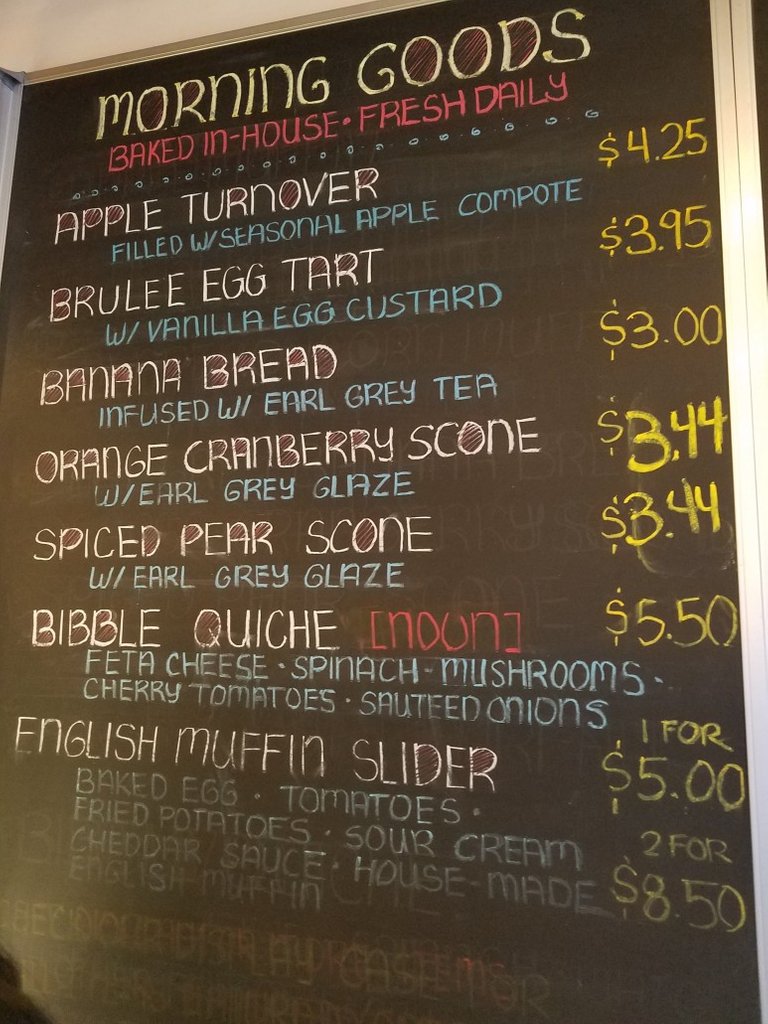 MORNING GOODS
BAKED IN-HOUSE · FRESH DAILY
APPLE TURNOVER $4.25
FILLED W/SEASONAL APPLE COMPOTE
BRULEE EGG TART $3.95
W/ VANILLA EGG CUSTARD
BANANA BREAD $3.00
INFUSED W/ EARL GREY TEA
ORANGE CRANBERRY SCONE $3.44
W/ EARL GREY GLAZE
SPICED PEAR SCONE $3.44
W/ EARL GREY GLAZE
BIBBLE QUICHE [NOUN] $5.50
FETA CHEESE · SPINACH · MUSHROOMS ·
CHERRY TOMATOES · SAUTEED ONIONS
ENGLISH MUFFIN SLIDER 1 FOR $5.00
BAKED EGG · TOMATOES ·
FRIED POTATOES · SOUR CREAM 2 FOR
CHEDDAR SAUCE · HOUSE-MADE $8.50
ENGLISH MUFFIN